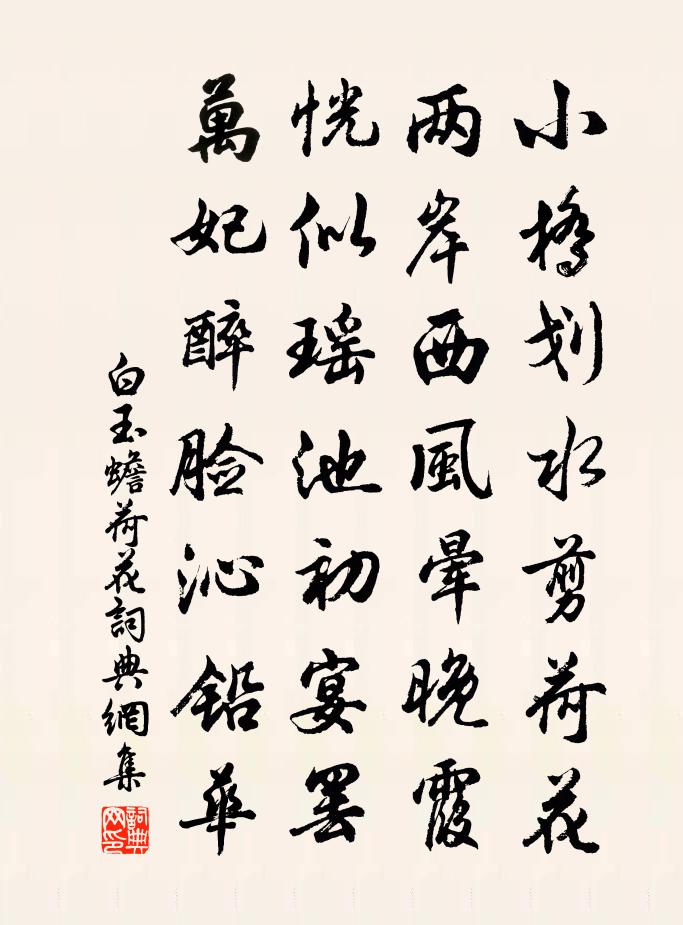 小橋划水剪荷花
两岸西風暈晚霞
恍似瑶池初宴罢
萬妃醉脸沁铅華
白玉蟾荷花詞典網集
詞典網印